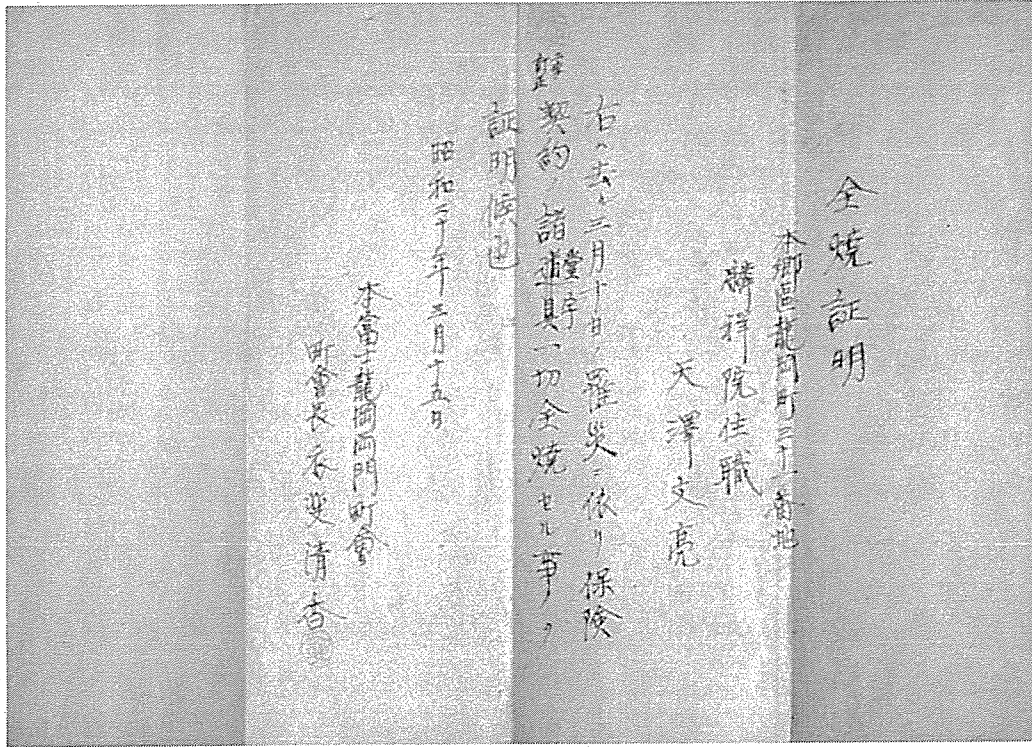 全焼証明
本郷區龍岡町三十一番地
麟祥院住職
天澤文亮
右ハ去ル三月十日ノ罹災ニ依リ保険
契約ノ諸道具一切全焼セル事ヲ
堂宇
証明候也
昭和二十年三月十五日
本富士龍岡両門町會
町會長 衣斐清香